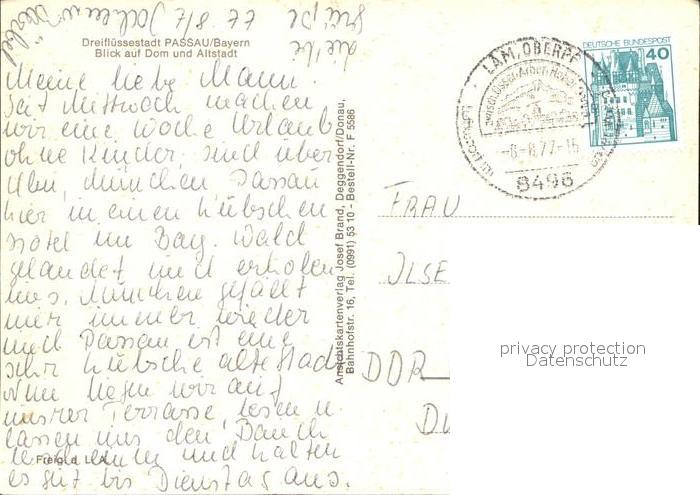 Dreiflüssestadt PASSAU/Bayern
Blick auf Dom und Altstadt
Meine liebe Mami.
Seit Mittwoch machen
wir eine Woche Urlaub
ohne Kinder, sind über
Ulm, München Passau
hier in einem hübschen
Hotel im Bay. Wald
gelandet und erholen
uns. München gefällt
mir immer wieder
und Passau ist eine
sehr hübsche alte Stadt
Nun liegen wir auf
unsrer Terrasse, lesen u.
lassen uns den Bauch
bescheinen und halten
es gut bis Dienstag aus.
Freig. d. L.A.
Ansichtskartenverlag Josef Brand, Deggendorf/Donau,
Bahnhofstr. 16, Tel. (0991) 53 10 - Bestell-Nr. F 5586
LAM, OBERPF
-8.-8.77-16
8496
DEUTSCHE BUNDESPOST
40
FRAU
ILSE
DDR
privacy protection
Datenschutz